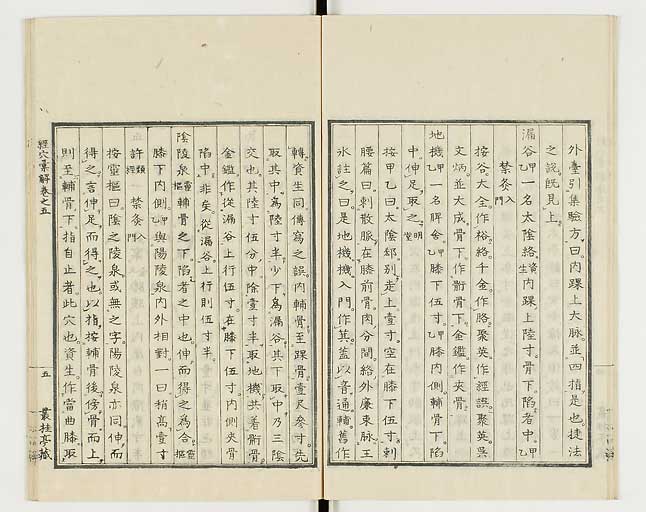 外臺引集驗方曰内踝上大脉並四指是也捷法
之說既見上
漏谷甲一名太陰絡資生内踝上陸寸骨下陷者中甲
禁灸入門
按谷大全作裕絡千金作胳聚英作經誤聚英吳
文炳並大成骨下作骭骨下金鑑作夾骨
地機甲一名脾舍甲膝下伍寸乙膝内側輔骨下陷
中伸足取之明堂
按甲乙曰太陰郄別走上壹寸空在膝下伍寸刺
腰篇曰刺散脈在膝前骨肉分間絡外廉束脉王
氷註之曰是地機機入門作其蓋以音通輔舊作
轉資生同傳寫之誤内輔骨至踝骨壹尺参寸先
取其中為陸寸半少下為漏谷其下取中乃三陰
交也其陸寸伍分中除壹寸半取地機共着骭骨
金鑑作從漏谷上行伍寸在膝下伍寸内側夾骨
陷中非矣從漏谷上行則伍寸半
陰陵泉靈樞輔骨之下陷者之中也伸而得之為合靈樞
膝下内側甲乙與陽陵泉内外相對一曰稍高壹寸
許類經禁灸入門
按靈樞曰陰之陵泉或無之字陽陵泉亦同伸而
得之言伸足而得之也以指按輔骨後傍骨而上
則至輔骨下指自止者此穴也資生作當曲膝取
經穴彙解卷之五
五
叢桂亭藏